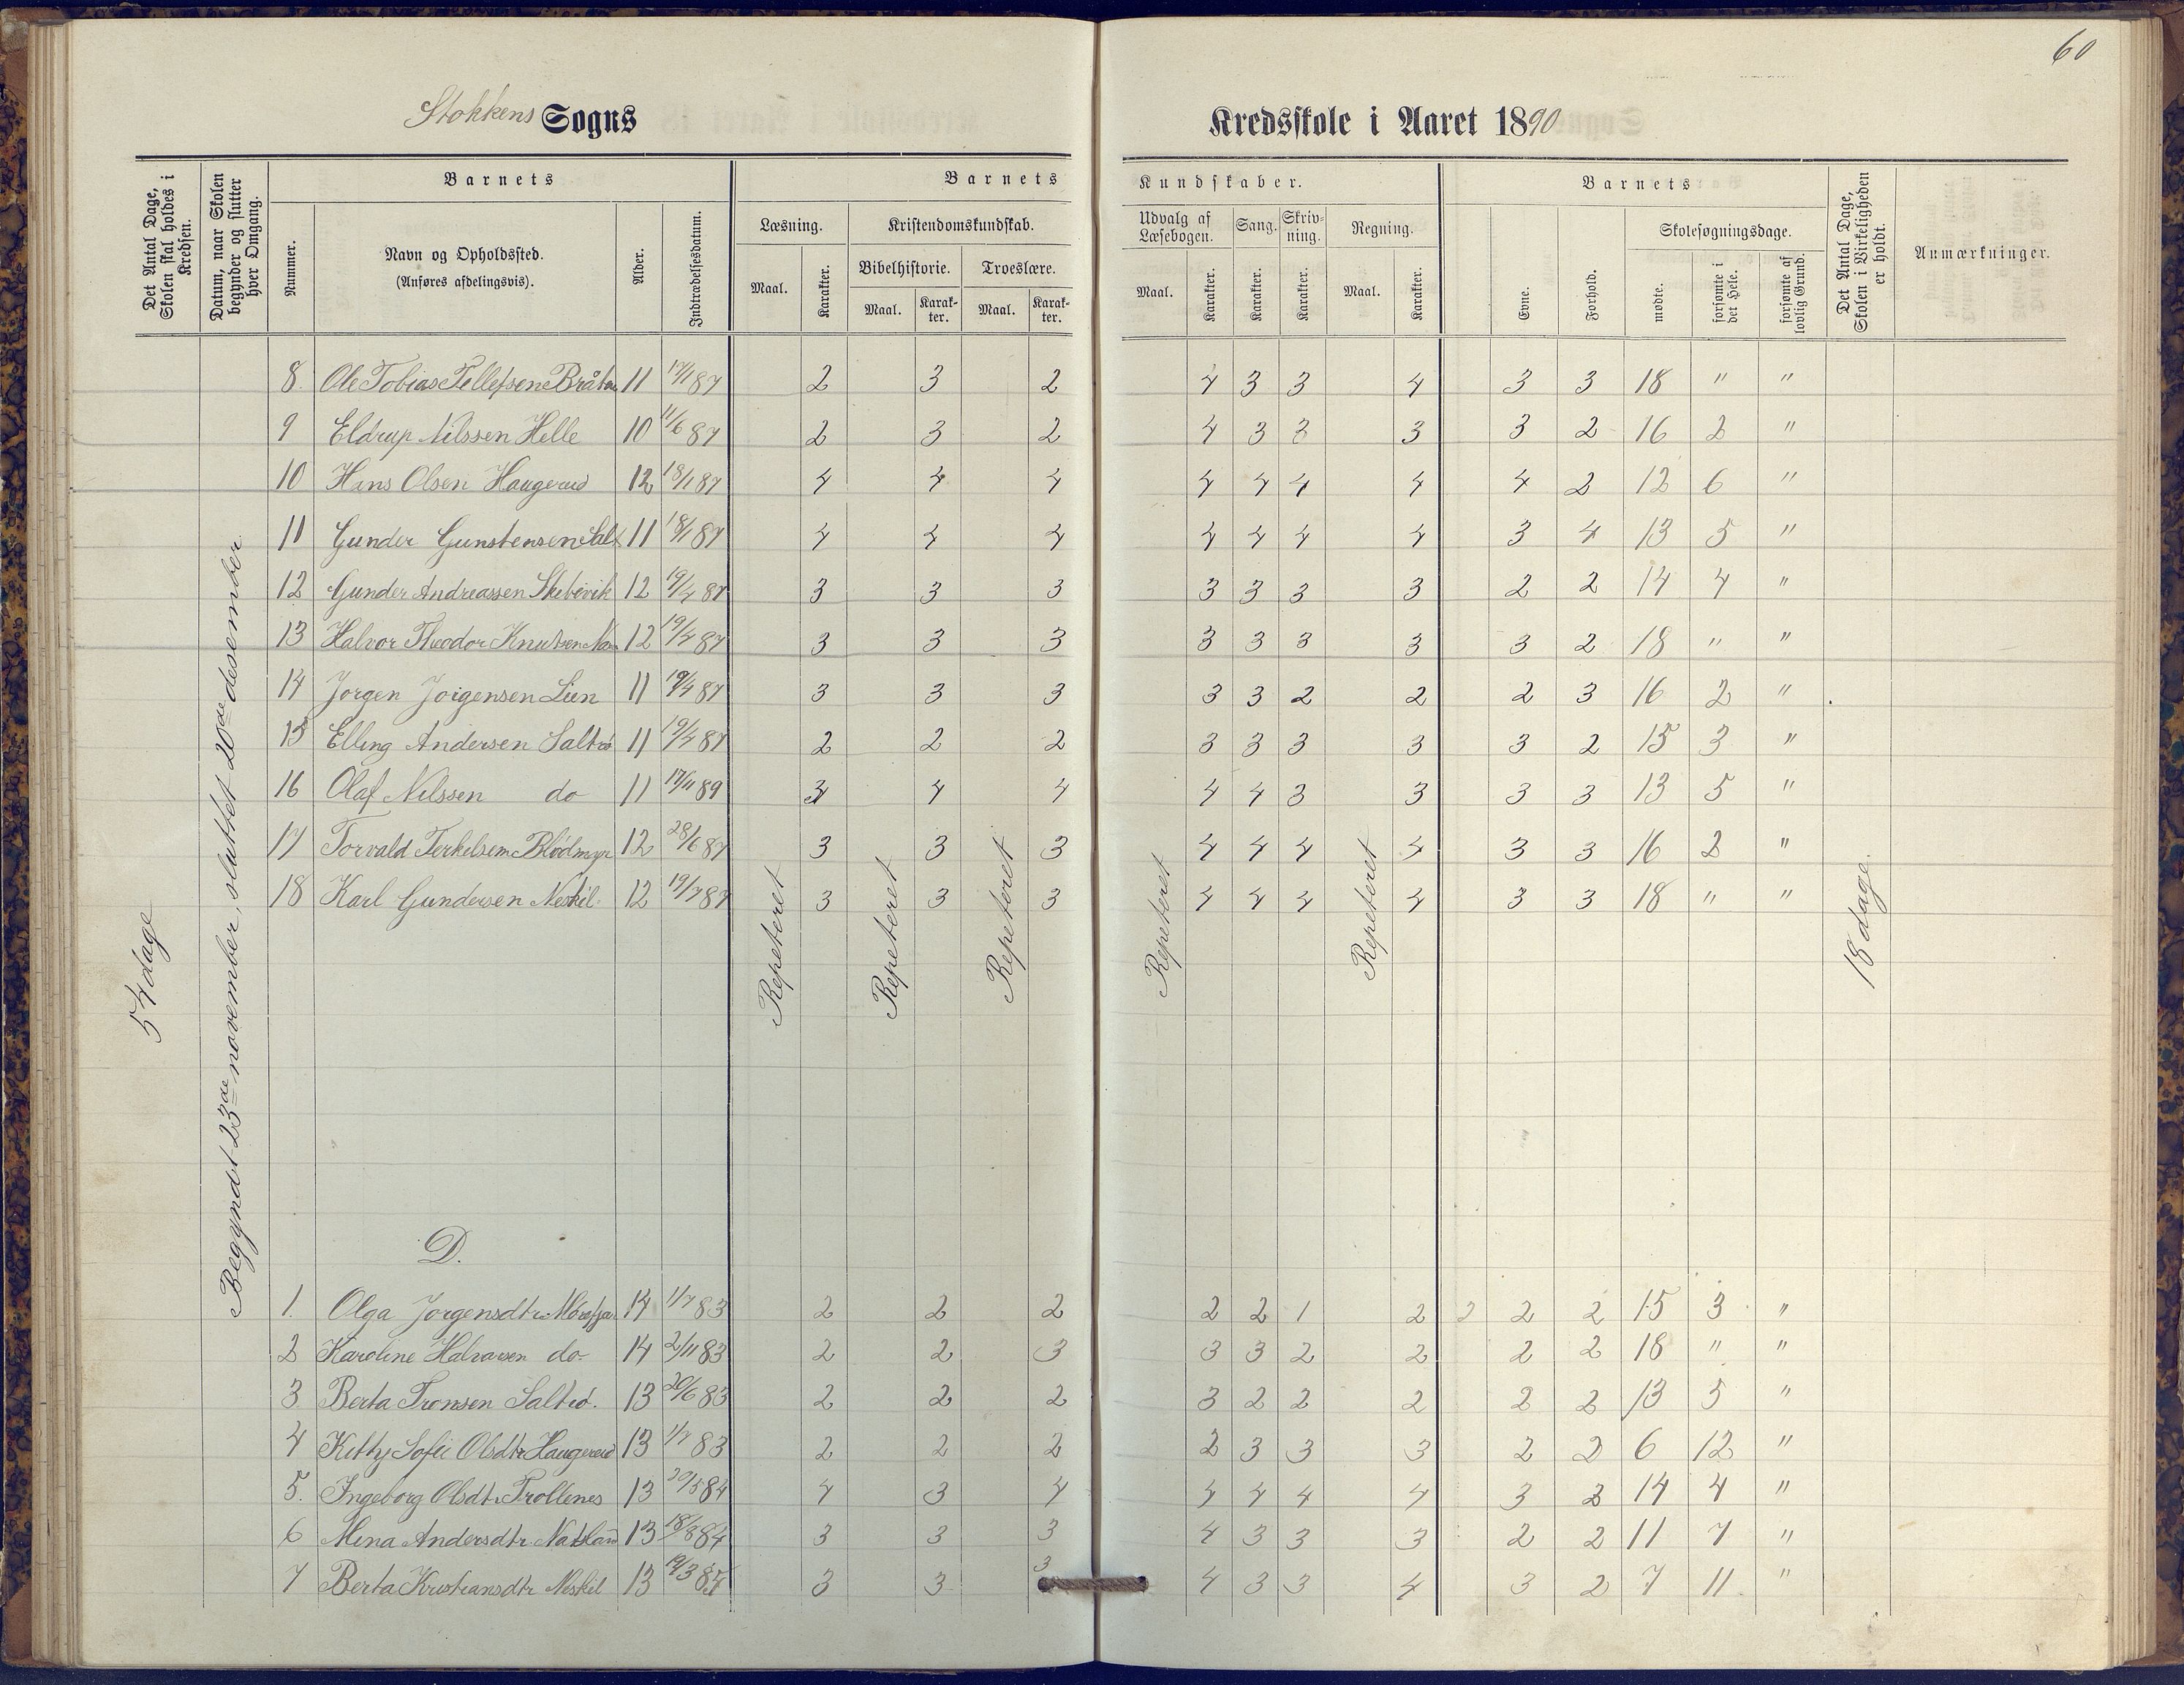 60
Stokkens Sogns Kredsskole i Aaret 1890
Det Antal Dage, Skolen skal holdes i Kredsen.
Datum, naar Skolen begynder og slutter hver Omgang.
Barnets
Nummer.
Navn og Opholdssted.
(Anføres afdelingsvis).
Alder.
Indtrædelsesdatum.
Barnets Kundskaber.
Læsning.
Maal.
Karakter.
Kristendomskundskab.
Bibelhistorie.
Maal.
Karakter.
Troeslære.
Maal.
Karakter.
Udvalg af Læsebogen.
Maal.
Karakter.
Sang.
Karakter.
Skrivning.
Karakter.
Regning.
Maal.
Karakter.
Barnets
Evne.
Forhold.
Skolesøgningsdage.
mødte.
forsømte i det Hele.
forsømte af lovlig Grund.
Det Antal Dage, Skolen i Virkeligheden er holdt.
Anmærkninger.
54 dage
Begyndt 23de november, sluttet 20de desember
8. Ole Tobias Tellefsen Bråten 11 17/11 87 2 3 2 4 3 3 4 3 3 18 " "
9 Eldrup Nilssen Helle 10 11/6 87 2 3 2 4 3 3 3 3 2 16 2 "
10 Hans Olsen Haugerud 12 18/1 87 4 4 4 4 4 4 4 4 2 12 6 "
11 Gunder Gunstensen Salt 11 18/1 87 4 4 4 4 4 4 4 3 4 13 5 "
12 Gunder Andreassen Skibvik 12 19/4 87 3 3 3 3 3 3 3 2 2 14 4 "
13 Halvor Theodor Knutsen 12 19/4 87 3 3 3 3 3 3 3 3 2 18 " "
14 Jorgen Jorgensen Lien 11 19/4 87 3 3 3 3 3 2 2 2 3 16 2 "
15 Elling Andersen Saltrö 11 19/4 87 2 2 2 3 3 3 3 3 2 15 3 "
16 Olaf Nilssen do 11 17/11 89 3 4 4 4 4 3 3 3 3 13 5 "
17 Torvald Terkelsen Blödmyr 12 28/6 87 3 3 3 4 4 4 4 3 3 16 2 "
18 Karl Gundersen Neskil 12 19/4 87 3 3 3 4 4 4 4 3 3 18 " "
Repeteret
Repeteret
Repeteret
Repeteret
Repeteret
18 dage
D.
1. Olga Jorgensdtr. 14 1/7 83 2 2 2 2 2 1 2 2 2 2 15 3 "
2 Karoline Halvorsen do 14 2/11 83 2 2 3 3 3 2 2 2 2 18 " "
3 Berta Tronsen Saltrö. 13 20/6 83 2 2 2 3 2 2 2 2 2 13 5 "
4 Kitty Sofie Olsdtr. Haugerud 13 1/7 83 2 2 2 2 3 3 3 2 2 6 12 "
5. Ingeborg Olsdtr. Trollenes 13 20/5 84 4 3 4 4 4 4 4 3 2 14 4 "
6 Mina Andersdtr. Natland 13 18/3 84 3 3 3 4 3 3 3 2 2 11 7 "
7 Berta Kristiansdtr Neskil 13 19/3 85 3 3 3 4 3 3 4 3 2 7 11 "